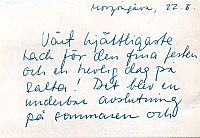 Morgongåva, 22.8.
Vårt hjärtligaste
tack för den fina festen
och en trevlig dag på
Salta! Det blev en
underbar avslutning
på sommaren och